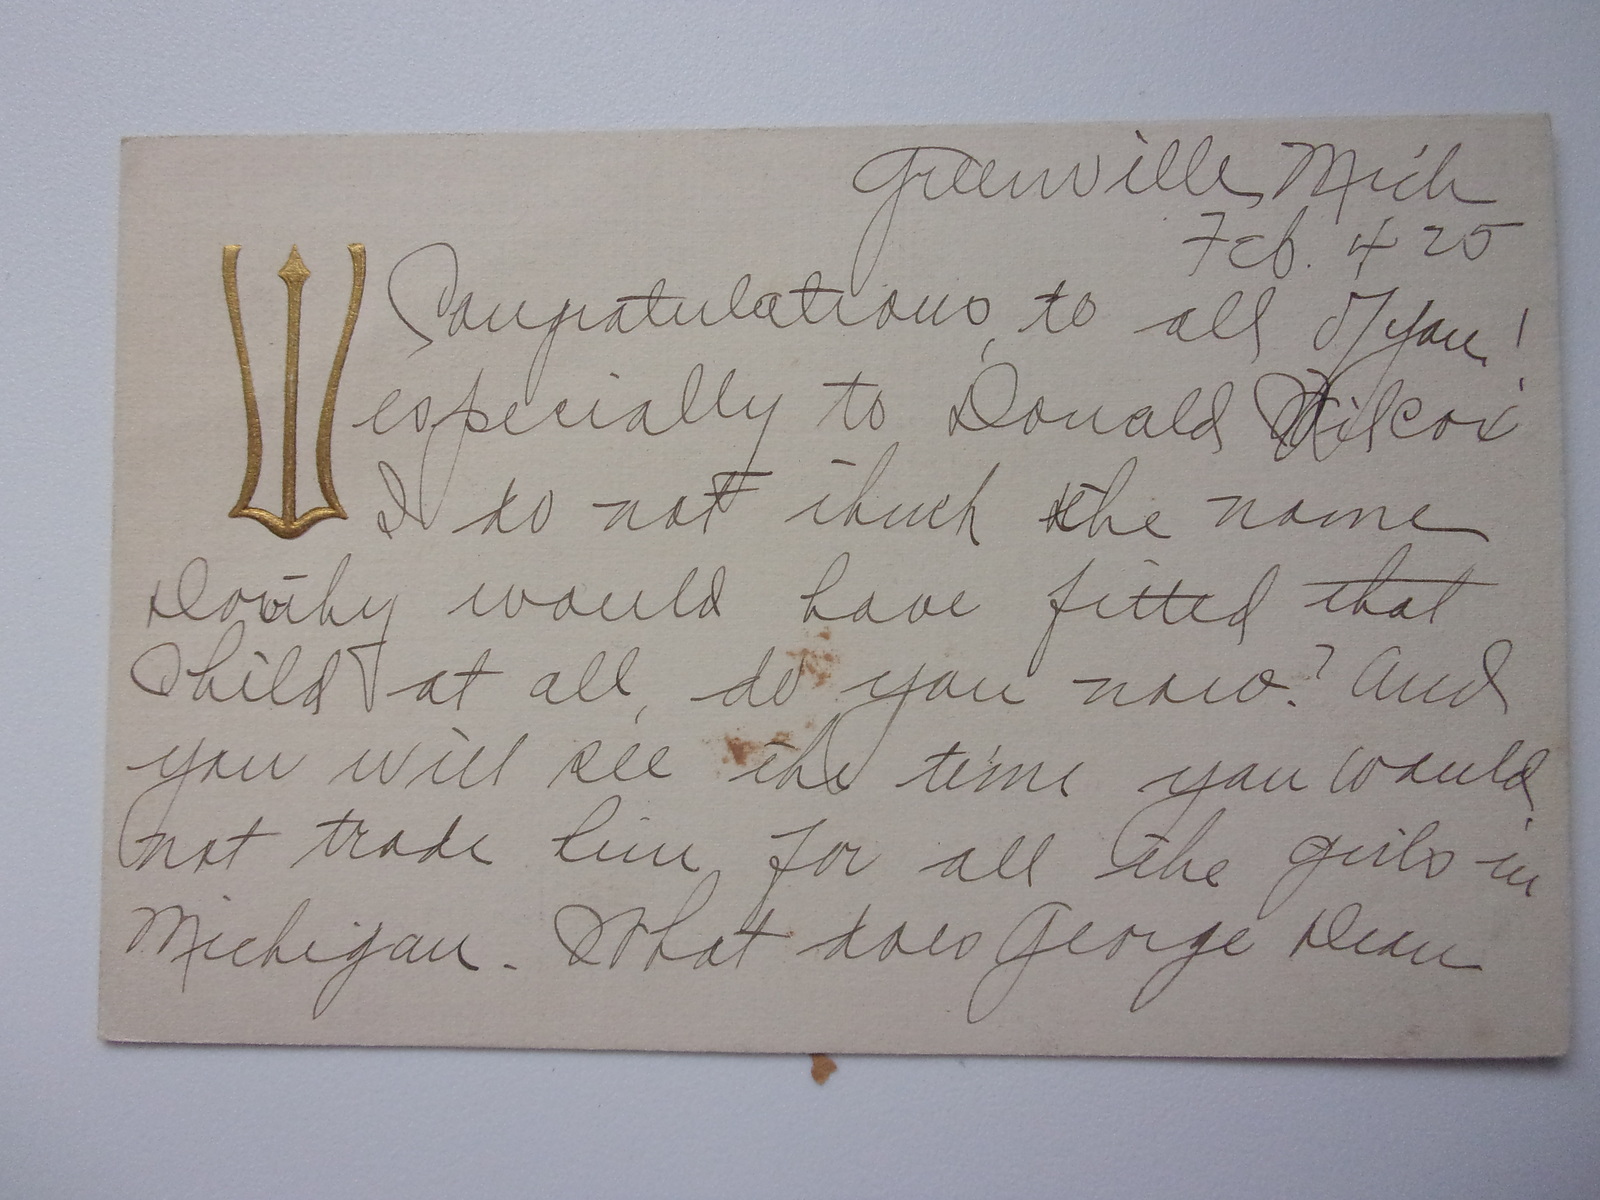 Greenville, Mich
Feb. 4 25
W
Congratulations, to all of you!
especially to Donald Wilcox
I do not think the name
Dorothy would have fitted that
Child at all, do you now? And
you will see the time you would
not trade him for all the girls in
Michigan. What does George Dean